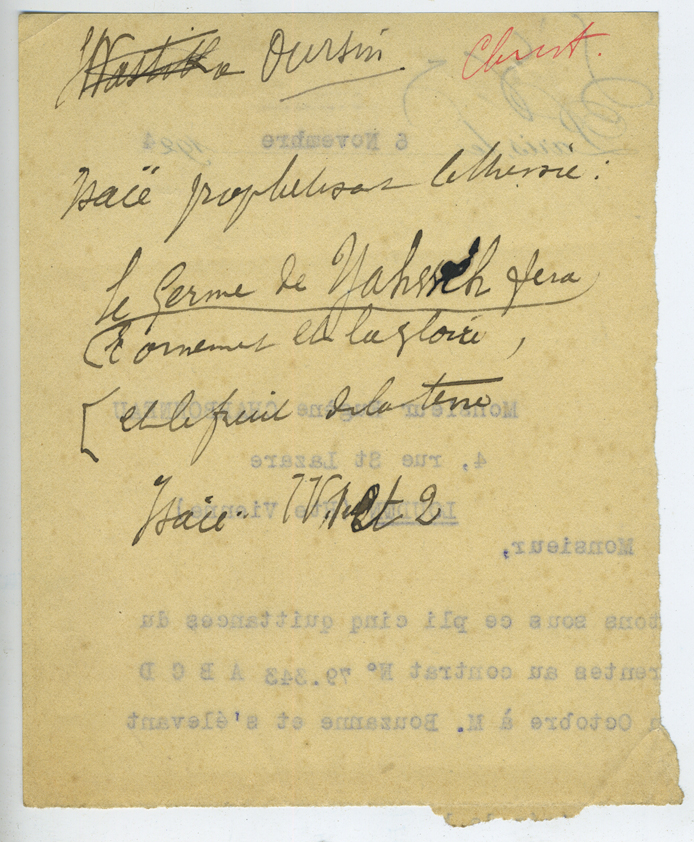 Swastika Oursin Christ.
6 Novembre 1924
Isaïe prophétisant le Messie :
le Germe de Yahweh sera
l'ornement et la gloire,
et le fruit de la terre
Monsieur Eugène CHARBONNEAU
4, rue St Lazare
Isaïe IV. 1 et 2
LOUDUN (Vienne)
Monsieur,
tons sous ce pli cinq quittances du
rentes au contrat N° 79.343 A B C D
Octobre à M. Bouzanne et s'élevant